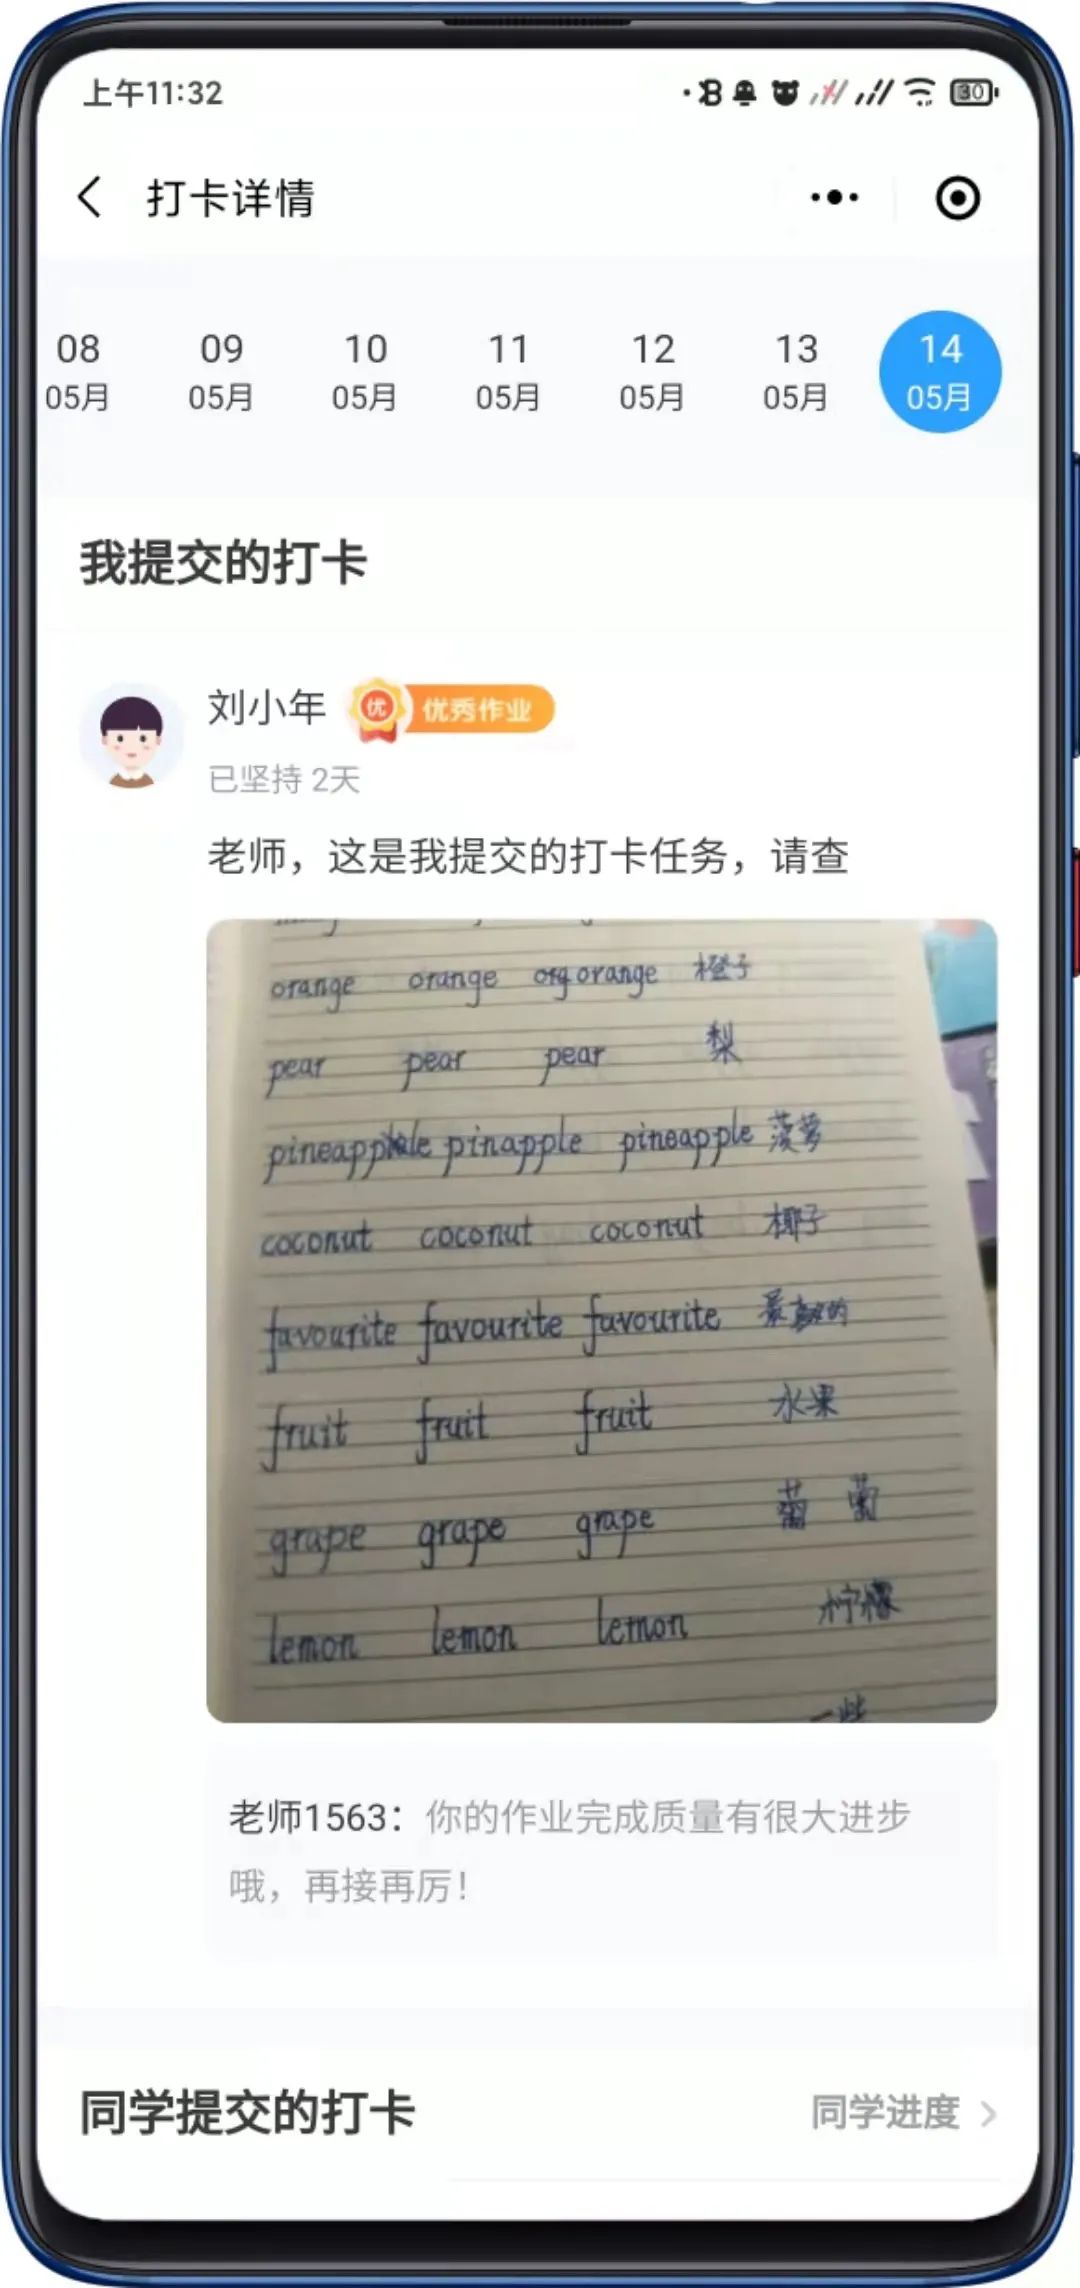 上午11:32
30
打卡详情
08 09 10 11 12 13 14
05月 05月 05月 05月 05月 05月 05月
我提交的打卡
刘小年 优 优秀作业
已坚持 2天
老师，这是我提交的打卡任务，请查
orange orange org orange 橙子
pear pear pear 梨
pineapple pinapple pineapple 菠萝
coconut coconut coconut 椰子
favourite favourite favourite 最喜欢的
fruit fruit fruit 水果
grape grape grape 葡萄
lemon lemon lemon 柠檬
一些
老师1563：你的作业完成质量有很大进步
哦，再接再厉！
同学提交的打卡 同学进度